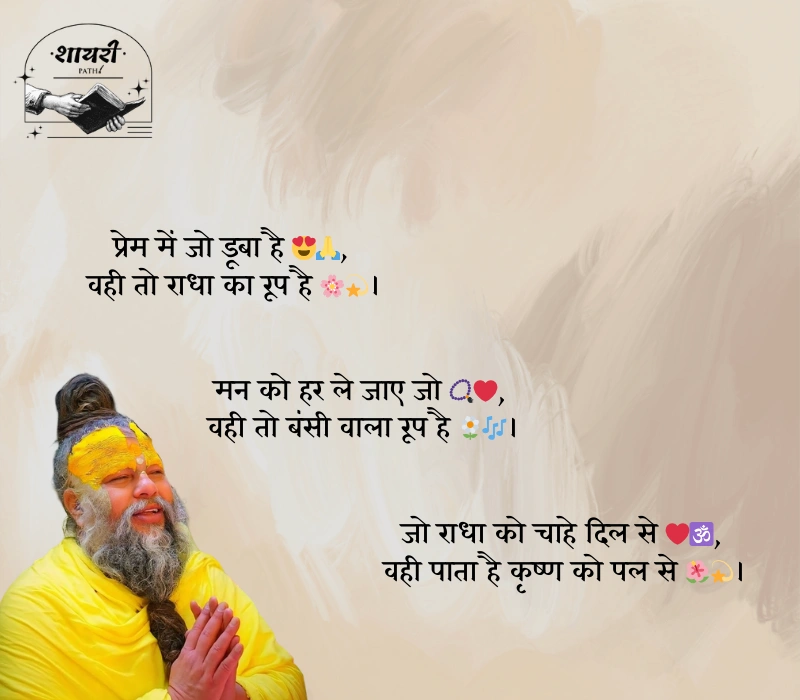 शायरी
PATH
प्रेम में जो डूबा है 😍🙏,
वही तो राधा का रूप है 🌸💫।
मन को हर ले जाए जो 📿❤️,
वही तो बंसी वाला रूप है 🌼🎶।
जो राधा को चाहे दिल से ❤️🕉️,
वही पाता है कृष्ण को पल से 🌺💫।